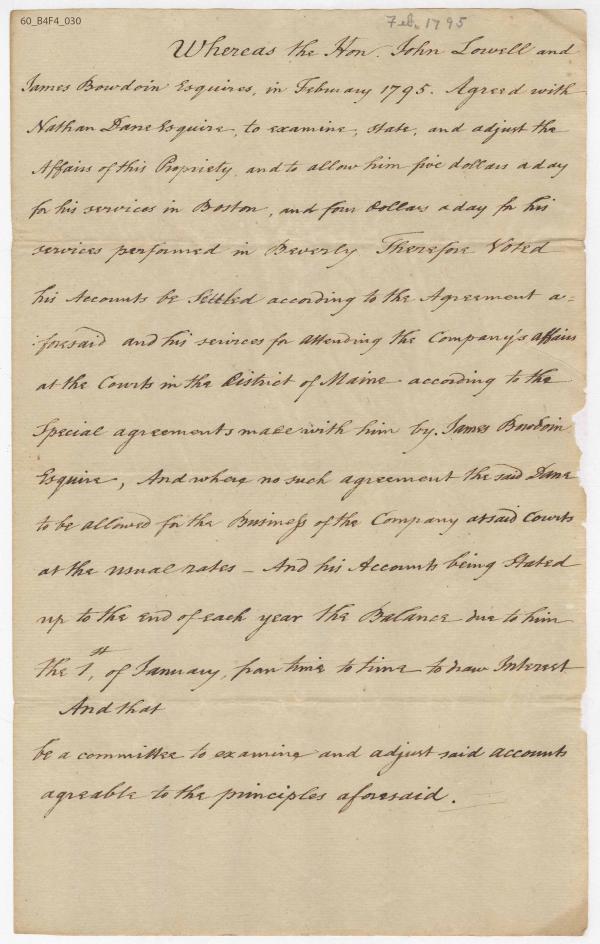 60_B4F4_030
Feb. 1795
Whereas the Hon. John Lowell and
James Bowdoin Esquires, in February 1795. Agreed with
Nathan Dane Esquire, to examine, state, and adjust the
Affairs of this Propriety, and to allow him five dollars a day
for his services in Boston, and four Dollars a day for his
services performed in Beverly Therefore Voted
his Accounts be Settled according to the Agreement a=
:foresaid and his services for attending the Company's affairs
at the Courts in the District of Maine according to the
Special agreements made with him by James Bowdoin
Esquire, And where no such agreement the said Dane
to be allowed for the Business of the Company at said Courts
at the usual rates - And his Accounts being Stated
up to the end of each year the Balance due to him
the 1,st of January, from time to time to draw Interest
And that
be a committee to examine and adjust said accounts
agreable to the principles aforesaid.